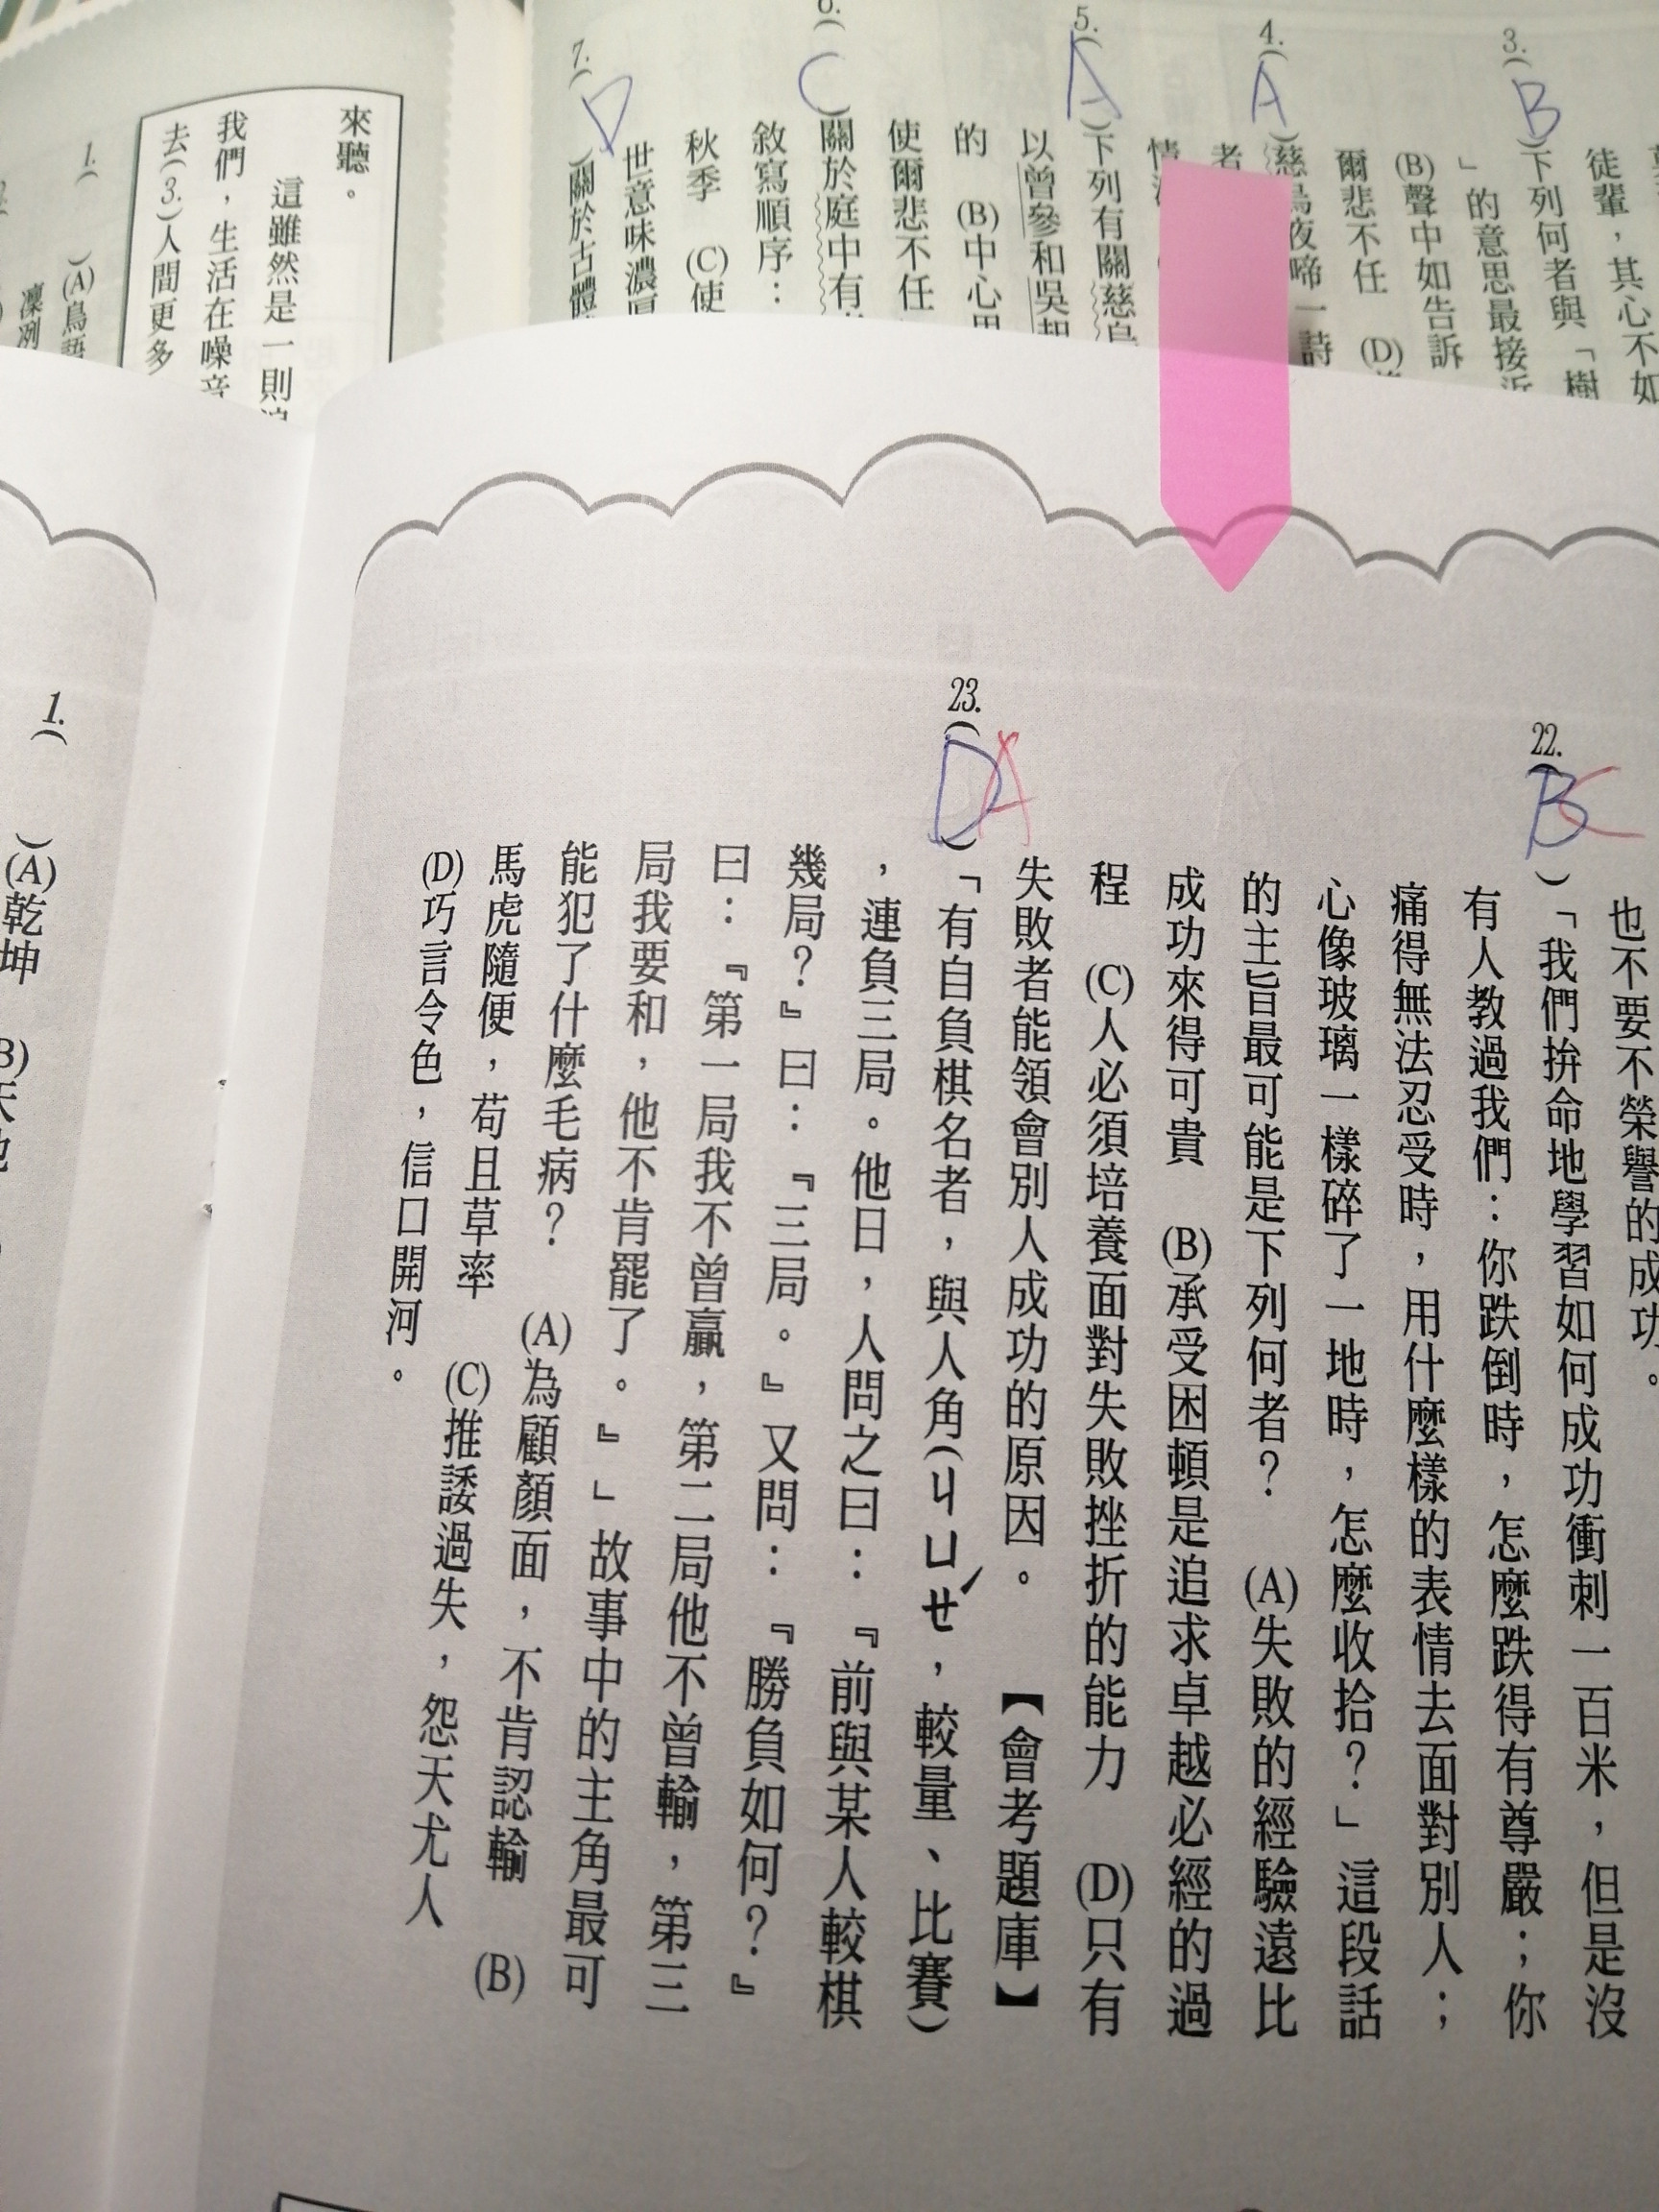 徒輩，其心不如
3.(B)下列何者與「樹
」的意思最接近
(B)聲中如告訴
爾悲不任 (D)
4.(A)慈烏夜啼一詩
者
情
5.(A)下列有關慈烏
以曾參和吳起
的 (B)中心思
使爾悲不任
6.(C)關於庭中有
敘寫順序：
秋季 (C)使
世意味濃厚
7.(D)關於古體
來聽。
這雖然是一則
我們，生活在噪音
去(3.)人間更多
1.( )(A)鳥語
凜冽
也不要不榮譽的成功。
22.(BC)「我們拚命地學習如何成功衝刺一百米，但是沒
有人教過我們：你跌倒時，怎麼跌得有尊嚴；你
痛得無法忍受時，用什麼樣的表情去面對別人；
心像玻璃一樣碎了一地時，怎麼收拾？」這段話
的主旨最可能是下列何者？ (A)失敗的經驗遠比
成功來得可貴 (B)承受困頓是追求卓越必經的過
程 (C)人必須培養面對失敗挫折的能力 (D)只有
失敗者能領會別人成功的原因。 【會考題庫】
23.(DA)「有自負棋名者，與人角(ㄐㄩㄝˊ，較量、比賽)
，連負三局。他日，人問之曰：『前與某人較棋
幾局？』曰：『三局。』又問：『勝負如何？』
曰：『第一局我不曾贏，第二局他不曾輸，第三
局我要和，他不肯罷了。』」故事中的主角最可
能犯了什麼毛病？ (A)為顧顏面，不肯認輸 (B)
馬虎隨便，苟且草率 (C)推諉過失，怨天尤人
(D)巧言令色，信口開河。
1.( )(A)乾坤 (B)天地